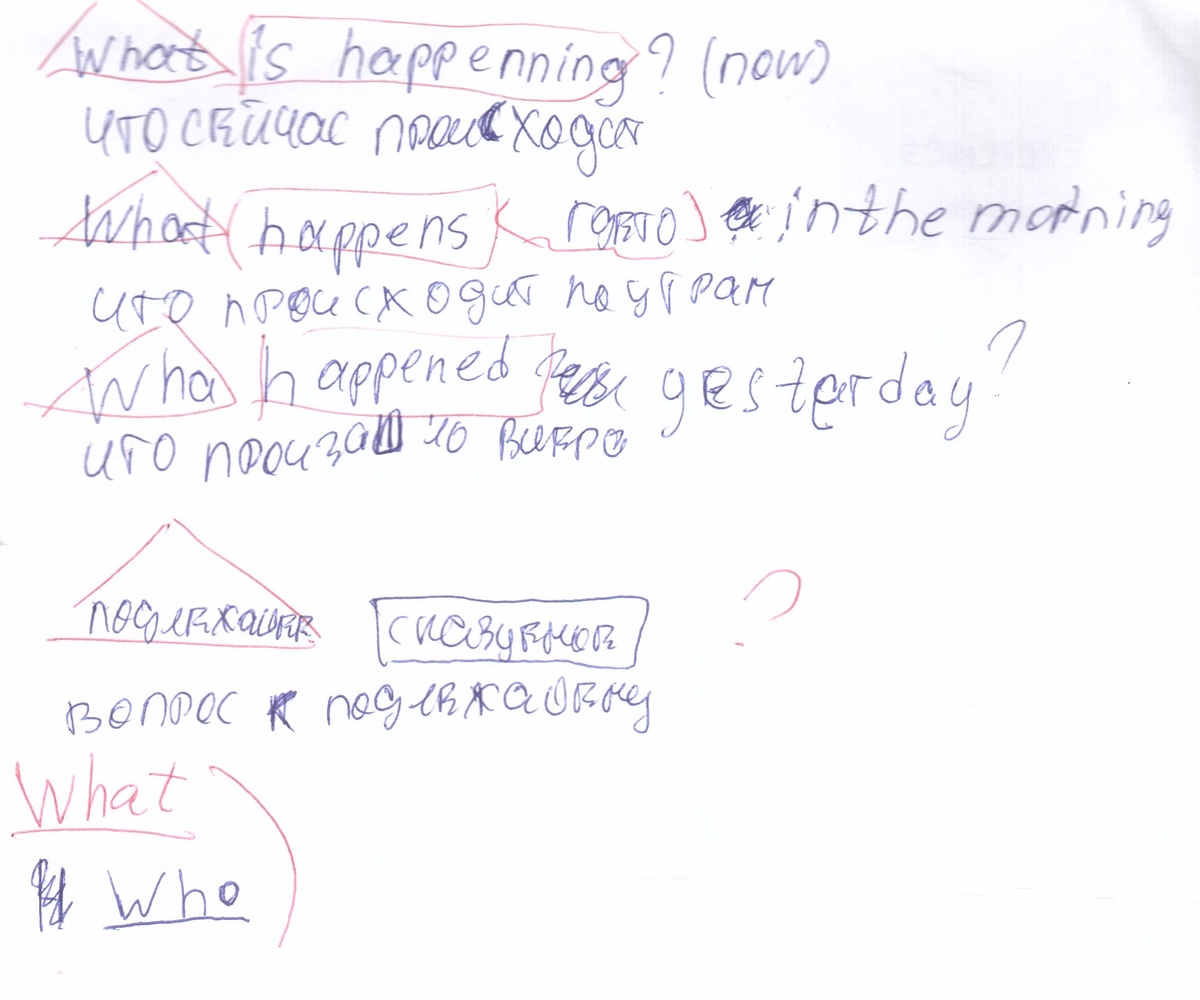 What is happenning? (now)
что сейчас происходит
What happens (где-то) in the morning
что происходит по утрам
Wha happened yesterday?
что произашло вчера
подлежащее сказуемое ?
вопрос к подлежащему
What
Who